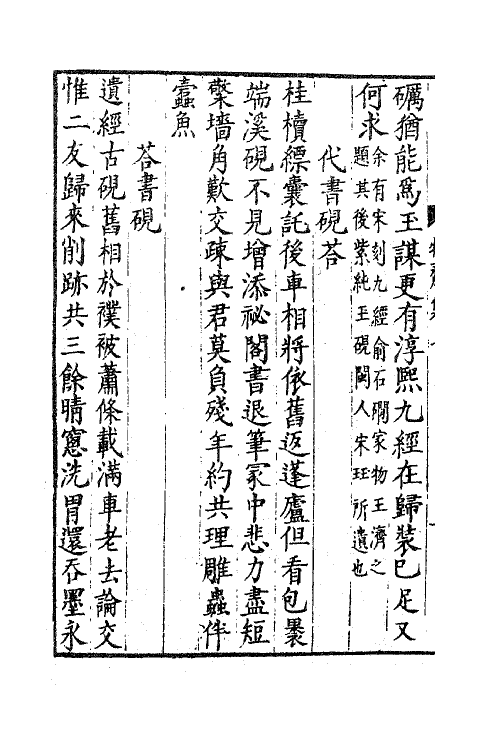 礪猶能爲玉謀更有淳熙九經在歸裝已足又
何求余有宋刻九經俞石磵家物王濟之
題其後紫純玉硯閩人宋珏所遺也
代書硯荅
桂櫝縹囊託後車相將依舊返蓬廬但看包裹
端溪硯不見增添祕閣書退筆冢中悲力盡短
檠墻角歎交疎與君莫負殘年約共理雕蟲伴
蠹魚
荅書硯
遺經古硯舊相於襆被蕭條載滿車老去論交
惟二友歸來削跡共三餘晴窻洗胃還吞墨永